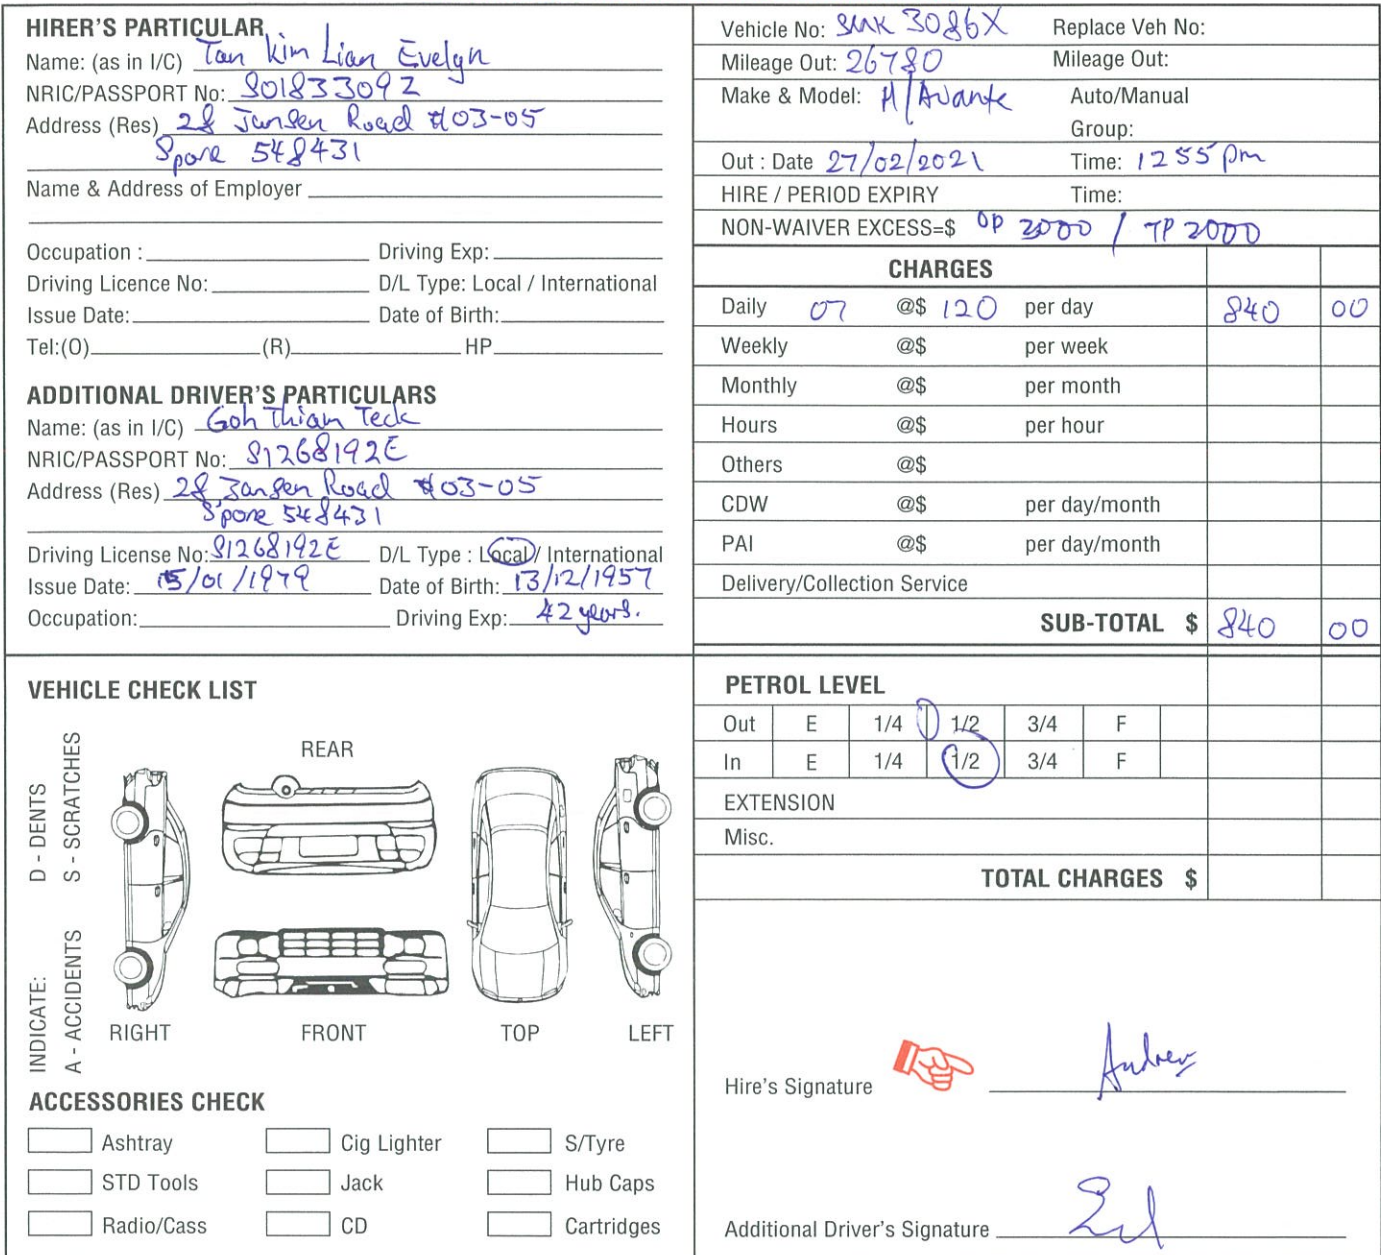 HIRER'S PARTICULAR
Name: (as in I/C) Tan Kim Lian Evelyn
NRIC/PASSPORT No: S0183309Z
Address (Res) 28 Jansen Road #03-05
S'pore 548431
Name & Address of Employer
Occupation : Driving Exp:
Driving Licence No: D/L Type: Local / International
Issue Date: Date of Birth:
Tel:(O) (R) HP
ADDITIONAL DRIVER'S PARTICULARS
Name: (as in I/C) Goh Thiam Teck
NRIC/PASSPORT No: S1268192E
Address (Res) 28 Jansen Road #03-05
S'pore 548431
Driving License No: S1268192E D/L Type : Local / International
Issue Date: 15/01/1979 Date of Birth: 13/12/1957
Occupation: Driving Exp: 42 years.
Vehicle No: SMK 3086X Replace Veh No:
Mileage Out: 26780 Mileage Out:
Make & Model: H/Avante Auto/Manual
Group:
Out : Date 27/02/2021 Time: 1255 pm
HIRE / PERIOD EXPIRY Time:
NON-WAIVER EXCESS=$ OD 2000 / TP 2000
CHARGES
Daily 07 @$ 120 per day 840 00
Weekly @$ per week
Monthly @$ per month
Hours @$ per hour
Others @$
CDW @$ per day/month
PAI @$ per day/month
Delivery/Collection Service
SUB-TOTAL $ 840 00
VEHICLE CHECK LIST
INDICATE: D - DENTS
A - ACCIDENTS S - SCRATCHES
REAR
RIGHT FRONT TOP LEFT
ACCESSORIES CHECK
Ashtray Cig Lighter S/Tyre
STD Tools Jack Hub Caps
Radio/Cass CD Cartridges
PETROL LEVEL
Out E 1/4 1/2 3/4 F
In E 1/4 1/2 3/4 F
EXTENSION
Misc.
TOTAL CHARGES $
Hire's Signature Andrew
Additional Driver's Signature